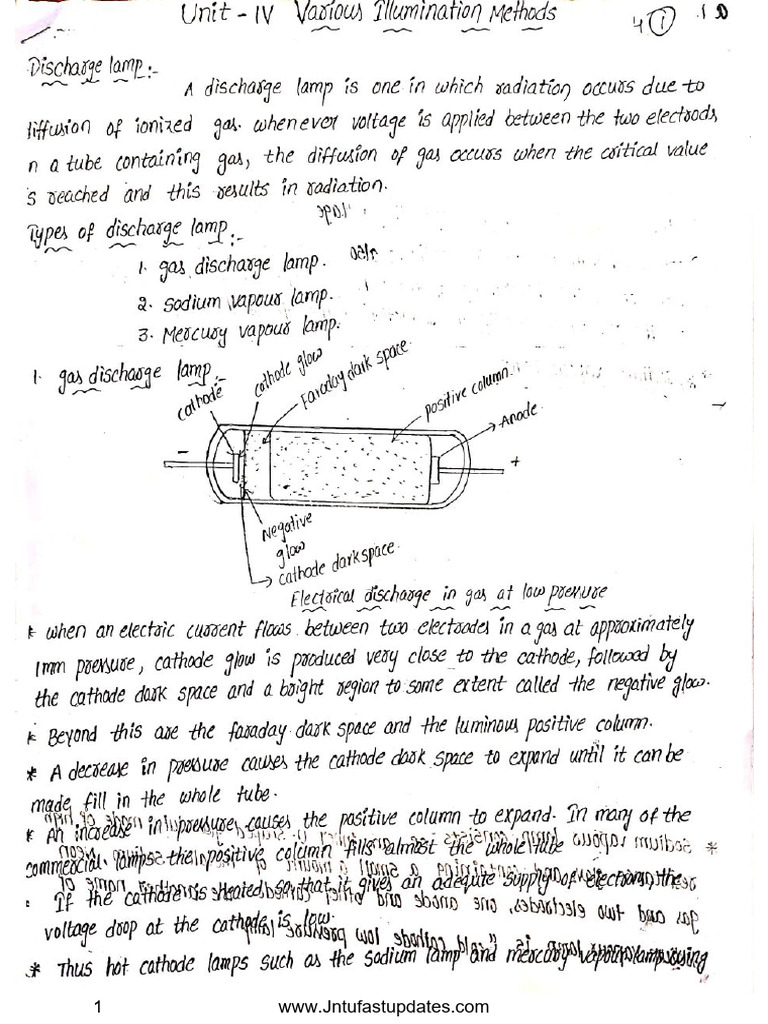 Unit - IV Various Illumination Methods
4 1
Discharge lamp :-
A discharge lamp is one in which radiation occurs due to
diffusion of ionized gas. whenever voltage is applied between the two electrods
n a tube containing gas, the diffusion of gas occurs when the critical value
s reached and this results in radiation.
Types of discharge lamp :-
1. gas discharge lamp.
2. Sodium vapour lamp.
3. Mercury vapour lamp.
1. gas discharge lamp :-
cathode
cathode glow
Faraday dark space
positive column
Anode
-
+
Negative
glow
cathode dark space
Electrical discharge in gas at low pressure
* when an electric current flows between two electrodes in a gas at approximately
1mm pressure, cathode glow is produced very close to the cathode, followed by
the cathode dark space and a bright region to some extent called the negative glow.
* Beyond this are the faraday dark space and the luminous positive column.
* A decrease in pressure causes the cathode dark space to expand until it can be
made fill in the whole tube.
* An increase in pressure causes the positive column to expand. In many of the
commercial lamps the positive column fills almost the whole tube
If the cathode is heated so that it gives an adequte supply of electrons, the
voltage drop at the cathode is low.
* Thus hot cathode lamps such as the sodium lamp and mercury vapour lamp using
1
www.Jntufastupdates.com